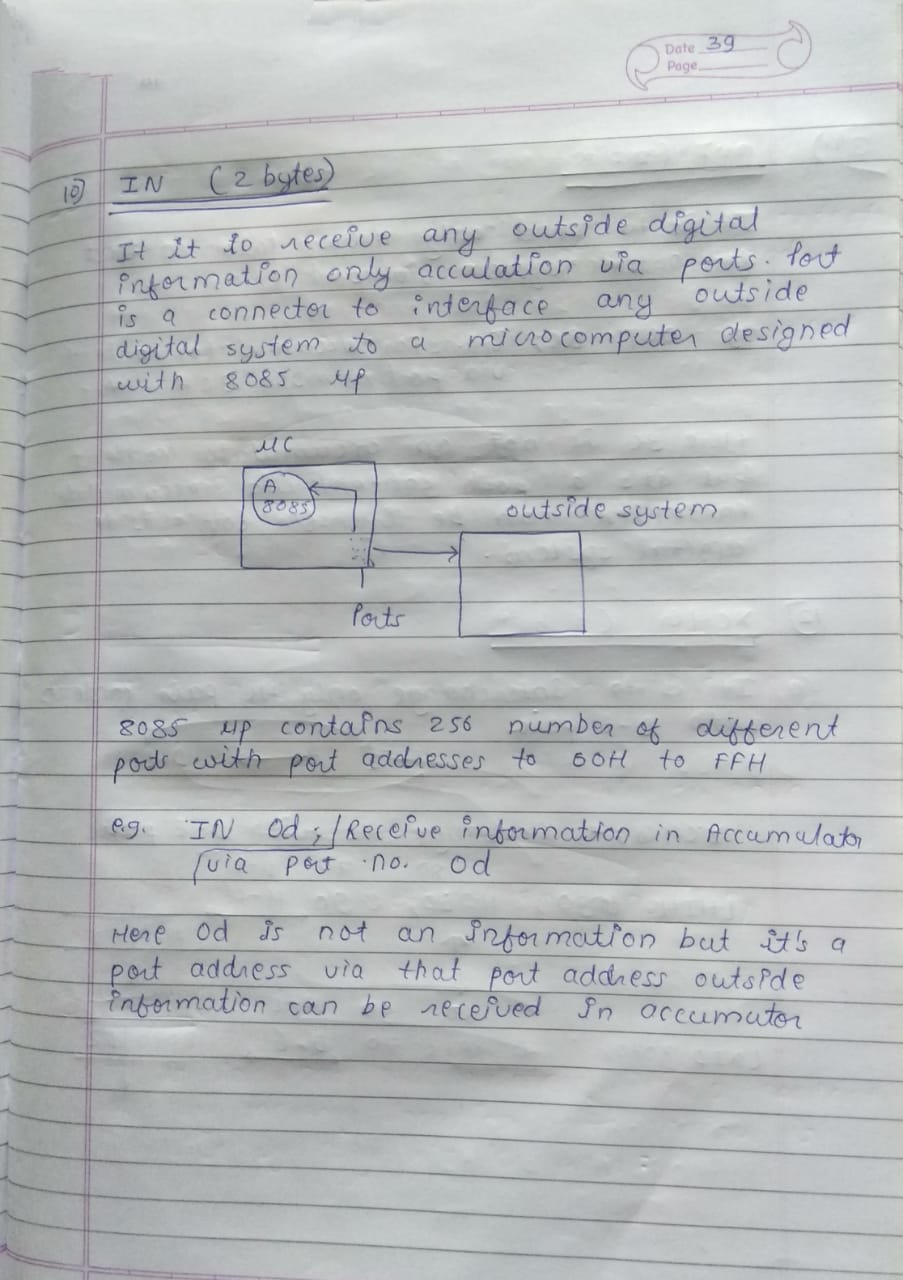 Date 39
Page
10) IN (2 bytes)
It it to receive any outside digital
information only acculation via ports. Port
is a connector to interface any outside
digital system to a microcomputer designed
with 8085 μp
μC
A
8085
outside system
Ports
8085 μp contains 256 number of different
pods with port addresses to 00H to FFH
e.g. IN 0d ; / Receive information in Accumulator
/ via port no. 0d
Here 0d is not an information but it's a
port address via that port address outside
information can be received in accumutor